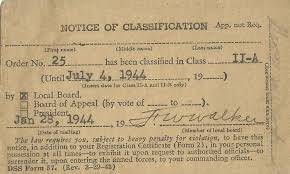 NOTICE OF CLASSIFICATION App. not Req.
(First name) (Middle name) (Last name)
Order No. 25 has been classified in Class II-A
(Until July 4, 1944, 19___)
(Insert date for Class II-A and II-B only)
by ☒ Local Board.
☐ Board of Appeal (by vote of ___ to ___).
☐ President.
Jan 28, 1944 19
(Date of mailing) (Member of local board)
The law requires you, subject to heavy penalty for violation, to have this
notice, in addition to your Registration Certificate (Form 2), in your personal
possession at all times—to exhibit it upon request to authorized officials—to
surrender it, upon entering the armed forces, to your commanding officer.
DSS Form 57. (Rev. 3-29-43)